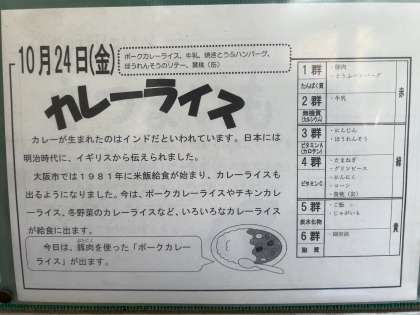 10月24日(金)
ポークカレーライス、牛乳、焼きとうふハンバーグ、
ほうれんそうのソテー、黄桃（缶）
カレーライス
カレーが生まれたのはインドだといわれています。日本には
明治時代に、イギリスから伝えられました。
大阪市では１９８１年に米飯給食が始まり、カレーライスも
出るようになりました。今は、ポークカレーライスやチキンカレ
ーライス、冬野菜のカレーライスなど、いろいろなカレーライス
が給食に出ます。
今日は、豚肉を使った「ポークカレー
ライス」が出ます。
１群
たんぱく質
・豚肉
・とうふハンバーグ
２群
無機質
(カルシウム)
・牛乳
赤
３群
ビタミンＡ
(カロテン)
・にんじん
・ほうれんそう
４群
ビタミンＣ
・たまねぎ
・グリンピース
・にんにく
・コーン
・黄桃（缶）
緑
５群
炭水化物
・ご飯
・じゃがいも
６群
脂質
黄